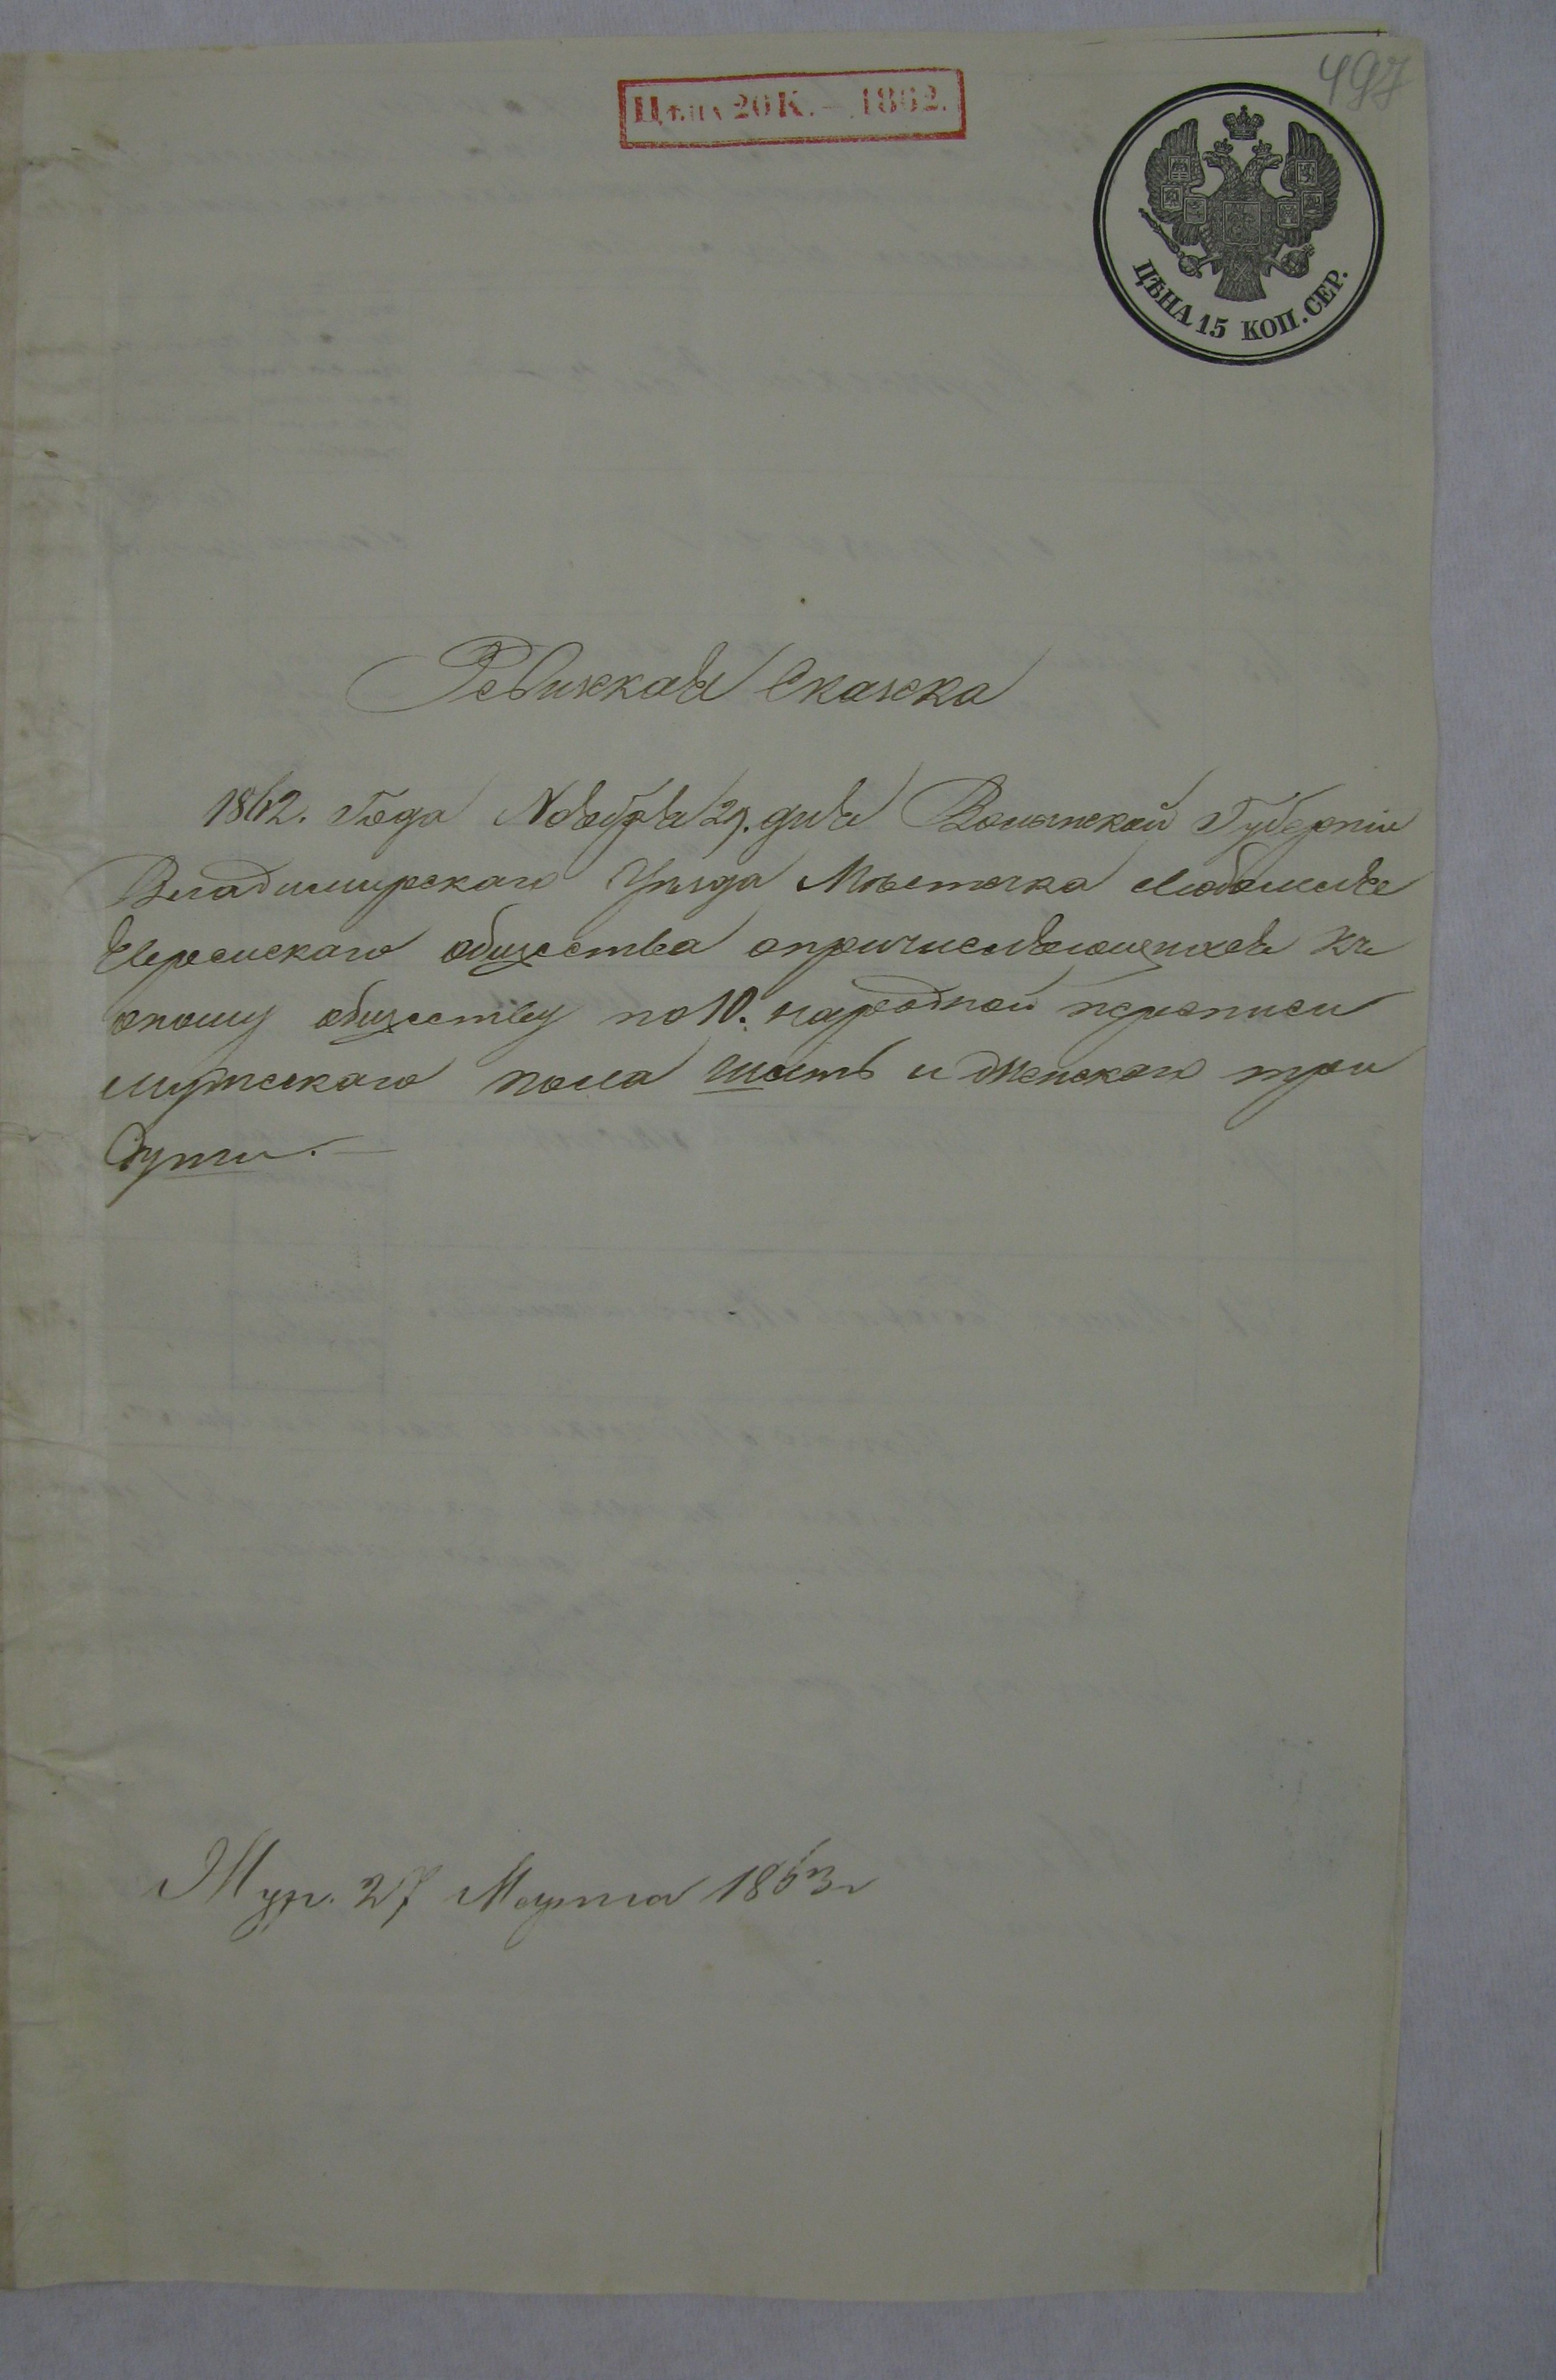 497
Цѣна 20 К. — 1862.
ЦѢНА 15 КОП. СЕР.
Ревижская Сказка
1862. Года Ноября 29. дня Волынской Губерніи
Владимирскаго Уѣзда Мѣстечка Любомля
Еврейскаго общества о причисляющихся къ
оному обществу по 10. народной переписи
мужескаго пола шесть и женскаго три
души.—
Жур. 27 Марта 1863 г